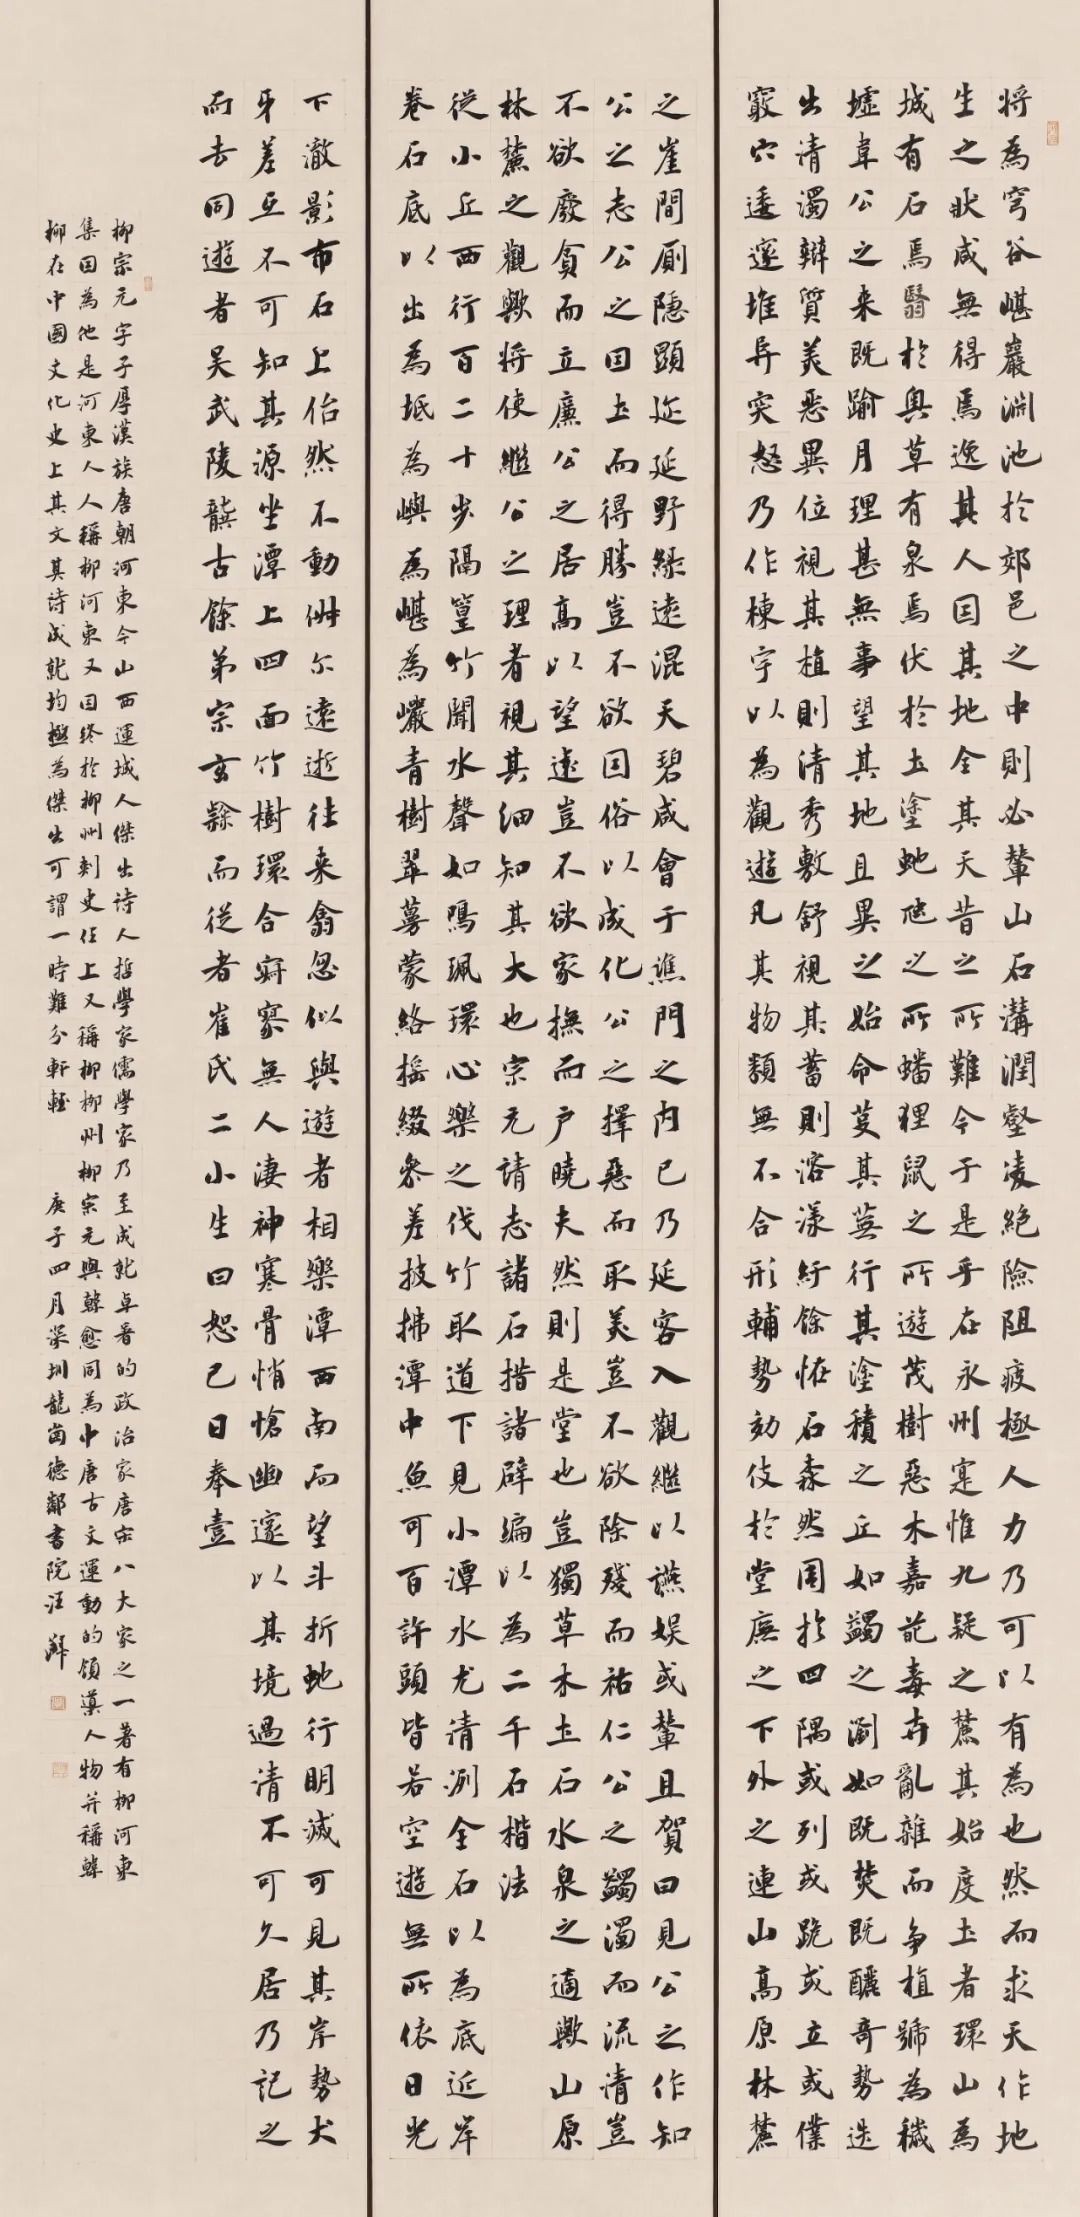 将為穹谷嵁巖淵池於郊邑之中則必輦山石溝澗壑凌絕險阻疲極人力乃可以有為也然而求天作地
生之狀咸無得焉逸其人因其地全其天昔之所難今于是乎在永州寔惟九疑之麓其始度土者環山為
城有石焉翳於奧草有泉焉伏於土塗虵虺之所蟠狸鼠之所遊茂樹惡木嘉葩毒卉亂雜而争植號為穢
墟韋公之来既踰月理甚無事望其地且異之始命芟其蕪行其塗積之丘如蠲之瀏如既焚既釃奇勢迭
出清濁辯質美惡異位視其植則清秀敷舒視其蓄則溶漾紆餘怪石森然周於四隅或列或跪或立或僕
竅穴逶邃堆阜突怒乃作棟宇以為觀遊凡其物類無不合形輔勢効伎於堂廡之下外之連山高原林麓
之崖間廁隱顯迩延野緑遠混天碧咸會于譙門之内已乃延客入觀繼以讌娱或輦且賀曰見公之作知
公之志公之因土而得勝豈不欲因俗以成化公之擇惡而取美豈不欲除殘而祐仁公之蠲濁而流清豈
不欲廢貪而立廉公之居高以望遠豈不欲家撫而户曉夫然則是堂也豈獨草木土石水泉之適歟山原
林麓之觀歟将使繼公之理者視其細知其大也宗元請志諸石措諸辟編以為二千石楷法
從小丘西行百二十步隔篁竹聞水聲如鳴珮環心樂之伐竹取道下見小潭水尤清冽全石以為底近岸
卷石底以出為坻為嶼為嵁為巖青樹翠蔓蒙絡摇綴参差披拂潭中魚可百許頭皆若空遊無所依日光
下澈影布石上佁然不動俶尔遠逝往来翕忽似與遊者相樂潭西南而望斗折虵行明滅可見其岸勢犬
牙差互不可知其源坐潭上四面竹樹環合寂寥無人凄神寒骨悄愴幽邃以其境過清不可久居乃記之
而去同遊者吴武陵龔古餘弟宗玄隸而從者崔氏二小生曰恕己曰奉壹
柳宗元字子厚漢族唐朝河東今山西運城人傑出诗人哲學家儒學家乃至成就卓著的政治家唐宋八大家之一著有柳河東
集因為他是河東人人稱柳河東又因终於柳州刺史任上又稱柳柳州柳宗元與韓愈同為中唐古文運動的領䢖人物并稱韓
柳在中國文化史上其文其诗成就均極為傑出可謂一時難分軒輊 庚子四月深圳龍崗德鄰書院汪